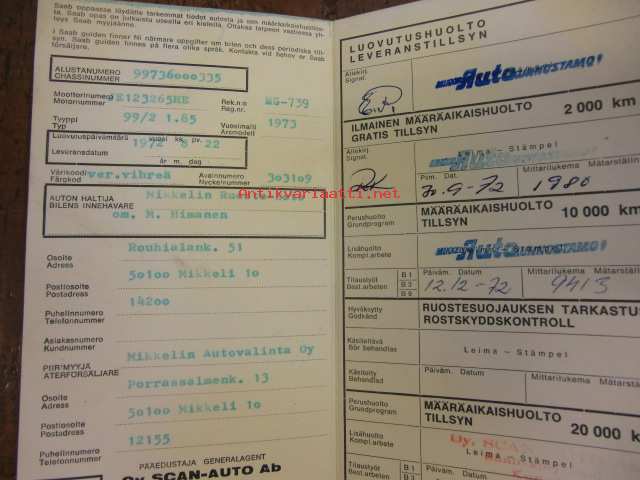 Saab oppaasse löydätte tarkemmat tiedot autosta ja sen määräaikaishuollois-
ta. Saab opas on julkaistu useilla eri kielellä. Ottakaa tarpeen vaatiessa yh-
teys Saab myyjäänne.
I Saab guiden finner Ni närmare uppgifter om bilen och dess periodiska till-
syn. Saab guiden finnes på flera olika språk. Kontakta vid behov er Saab
försäljare.
ALUSTANUMERO
CHASSINUMMER
99736000335
Moottorinumero
Motornummer
Rek.n:o
Reg.nr.
MG-739
Tyyppi
Typ
99/2 1.85
Vuosimalli
Årsmodell
1973
Luovutuspäivämäärä
Leveransdatum
vuosi kk. pv.
1972 8 22
år m. dag
Värikoodi
Färgkod
ver.vihreä
Avainnumero
Nyckelnummer
303109
AUTON HALTIJA
BILENS INNEHAVARE
Mikkelin
om. M. Himanen
Osoite
Adress
Rouhialank. 51
Postiosoite
Postadress
50100 Mikkeli 10
Puhelinnumero
Telefonnummer
14200
Asiakasnumero
Kundnummer
PIIRIMYYJÄ
ÅTERFÖRSÄLJARE
Mikkelin Autovalinta Oy
Osoite
Adress
Porrassalmenk. 13
Postiosoite
Postadress
50100 Mikkeli 10
Puhelinnumero
Telefonnummer
12155
PÄÄEDUSTAJA GENERALAGENT
Oy SCAN-AUTO Ab
LUOVUTUSHUOLTO
LEVERANSTILLSYN
Allekirj.
Signat.
Auto
ILMAINEN MÄÄRÄAIKAISHUOLTO
GRATIS TILLSYN
2 000 km
Allekirj.
Signat.
Leima – Stämpel
Pvm. Dat.
30.9-72
Mittarilukema Mätarställn
1980
Perushuolto
Grundprogram
MÄÄRÄAIKAISHUOLTO
TILLSYN
10 000 km
Lisähuolto
Kompl.arbete
Auto
Tilaustyöt
Best.arbeten
B 1
B 3
B 9
Päiväm. Datum
12.12-72
Mittarilukema Mätarställn
9413
Hyväksytty
Godkänd
RUOSTESUOJAUKSEN TARKASTUS
ROSTSKYDDSKONTROLL
Käsiteltävä
Bör behandlas
Leima – Stämpel
Käsitelty
Behandlad
Päiväm. Datum
Mittarilukema Mätarställn
Perushuolto
Grundprogram
MÄÄRÄAIKAISHUOLTO
TILLSYN
20 000 km
Lisähuolto
Kompl.arbete
Oy. SCA
Leima – Stämpel
Tilaustyöt
Best.arbeten
B 1
B 3
Päiväm. Datum
Mittarilukema Mätarställn
Antikvariaatti.net